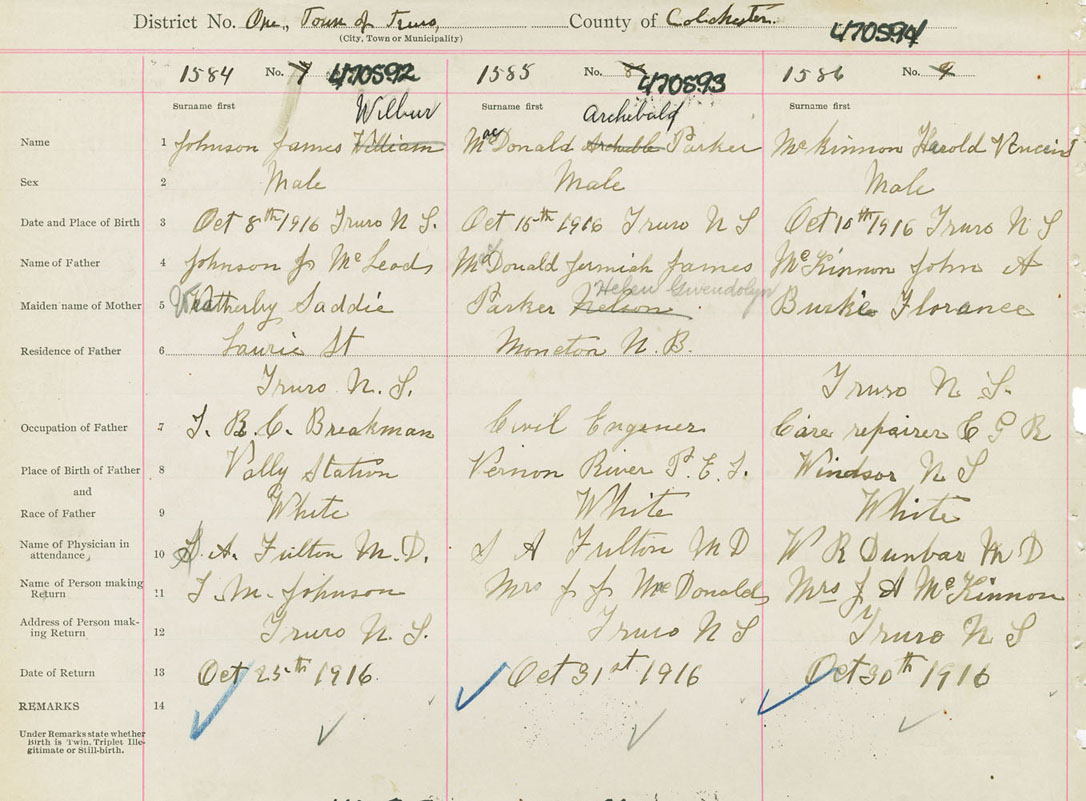 District No. One, Town of Truro, County of Colchester.
(City, Town or Municipality)
470594
1584 No. 7 470592 1585 No. 8 470593 1586 No. 9
Surname first Wilbur Surname first Archibald Surname first
Name 1 Johnson James William MacDonald Archible Parker McKinnon Harold Vincint
Sex 2 Male Male Male
Date and Place of Birth 3 Oct 8th 1916 Truro N S. Oct 15th 1916 Truro N S Oct 10th 1916 Truro N S
Name of Father 4 Johnson J McLeod MacDonald Jermiah James McKinnon John A
Helen Gwendolyn
Maiden name of Mother 5 Weatherby Saddie Parker Nelson Burke Florance
Residence of Father 6 Laurie St Moncton N. B.
Truro N. S. Truro N S.
Occupation of Father 7 I. R. C. Breakman Civil Engener Care repairer C G R
Place of Birth of Father 8 Vally Station Vernon River P. E. I. Windsor N S
and
Race of Father 9 White White White
Name of Physician in attendance, 10 S. A. Fulton M. D. S A Fulton M D W R Dunbar M D
Name of Person making Return 11 J. M. Johnson Mrs J J MacDonald Mrs J A McKinnon
Address of Person making Return 12 Truro N. S. Truro N S Truro N S
Date of Return 13 Oct 25th 1916. Oct 31st 1916 Oct 30th 1916
REMARKS 14
Under Remarks state whether
Birth is Twin, Triplet Ille-
gitimate or Still-birth.